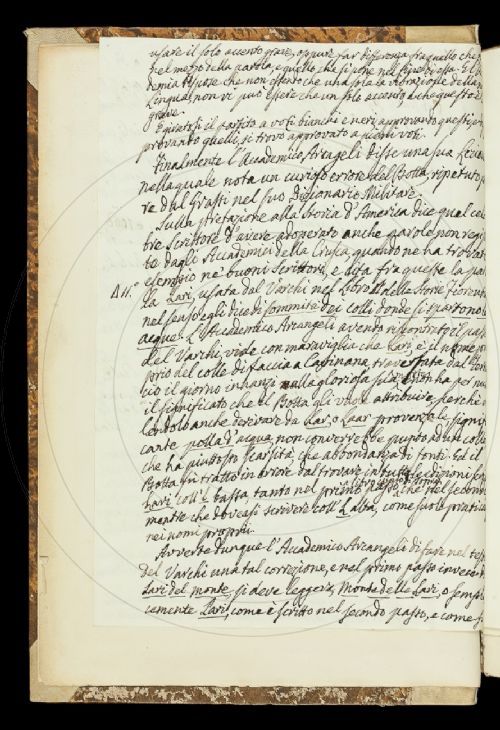 usare il solo accento grave, oppure far differenza fra quello che
nel mezzo della parola, e quello che si pone nel fine di essa. El
demia rispose che non essendo che una sola la vibrazione della
Lingua, non vi può essere che un solo accento, e che questo è
grave.
E messosi il partito a voti bianchi e neri, approvando questi, e
provando quelli, si trovò approvato a pieni voti.
Finalmente l'Accademico Arcangeli disse una sua Lezione
nella quale nota un curioso errore del Botta, ripetuto
re dal Grassi nel suo Dizionario Militare.
Sulla prefazione alla Storia d'America dice quel cele
bre Scrittore d'avere adoperato anche parole non regi
te dagli Accademici della Crusca quando ne ha trovato
esempio ne' buoni Scrittori, e cita fra queste la pa
Δ 11.° la Lari, usata dal Varchi nel Lib. delle Storie fiorent
nel senso egli dice di sommità dei colli donde si spartono le
acque. L'Accademico Arcangeli avendo riscontrato il passo
del Varchi, vide con maraviglia che Lari è il nome pro
prio del colle di faccia a Gavinana, traversato dal
cio il giorno innanzi alla gloriosa sua e non ha per
il significato che il Botta gli vuole attribuire, perchè
lendolo anche derivare da Lar, o Laar provenzale signifi
cante polla d'acqua, non converrebbe punto ad un colle
che ha piuttosto scarsità che abbondanza di fonti. Ed il
Botta fu tratto in errore dal trovare in tutte le edizioni
Lari coll'l bassa tanto nel primo passo, che nel secondo
mentre che doveasi scrivere coll'L alta, come suole praticarsi
nei nomi proprii.
Avverte dunque l'Accademico Arcangeli di fare nel testo
del Varchi una tal correzione, e nel primo passo invece di
Lari del monte, si deve leggere, Monte delle Lari, o sempli
cemente Lari, come è scritto nel secondo passo, e come